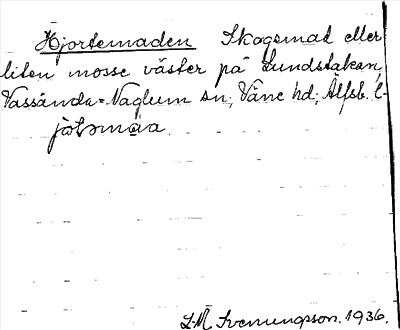 Hjortemaden Skogsmad eller
liten mosse väster på Lundstakan,
Vassända-Naglum sn; Väne hd; Älfsb. l-
jotsmåa.
L.M. Svenungsson. 1936.